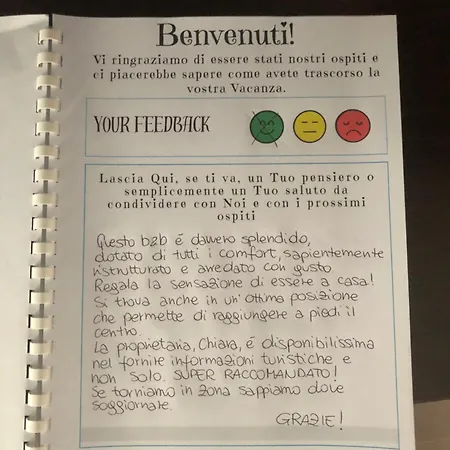 Benvenuti!
Vi ringraziamo di essere stati nostri ospiti e
ci piacerebbe sapere come avete trascorso la
vostra Vacanza.
YOUR FEEDBACK
Lascia Qui, se ti va, un Tuo pensiero o
semplicemente un Tuo saluto da
condividere con Noi e con i prossimi
ospiti
Questo b&b é davvero splendido,
dotato di tutti i comfort, sapientemente
ristrutturato e arredato con gusto
Regala la sensazione di essere a casa!
Si trova anche in un'ottima posizione
che permette di raggiungere a piedi il
centro.
La proprietaria, Chiara, é disponibilissima
nel fornire informazioni turistiche e
non solo. SUPER RACCOMANDATO!
Se torniamo in zona sappiamo dove
soggiornate.
GRAZIE!